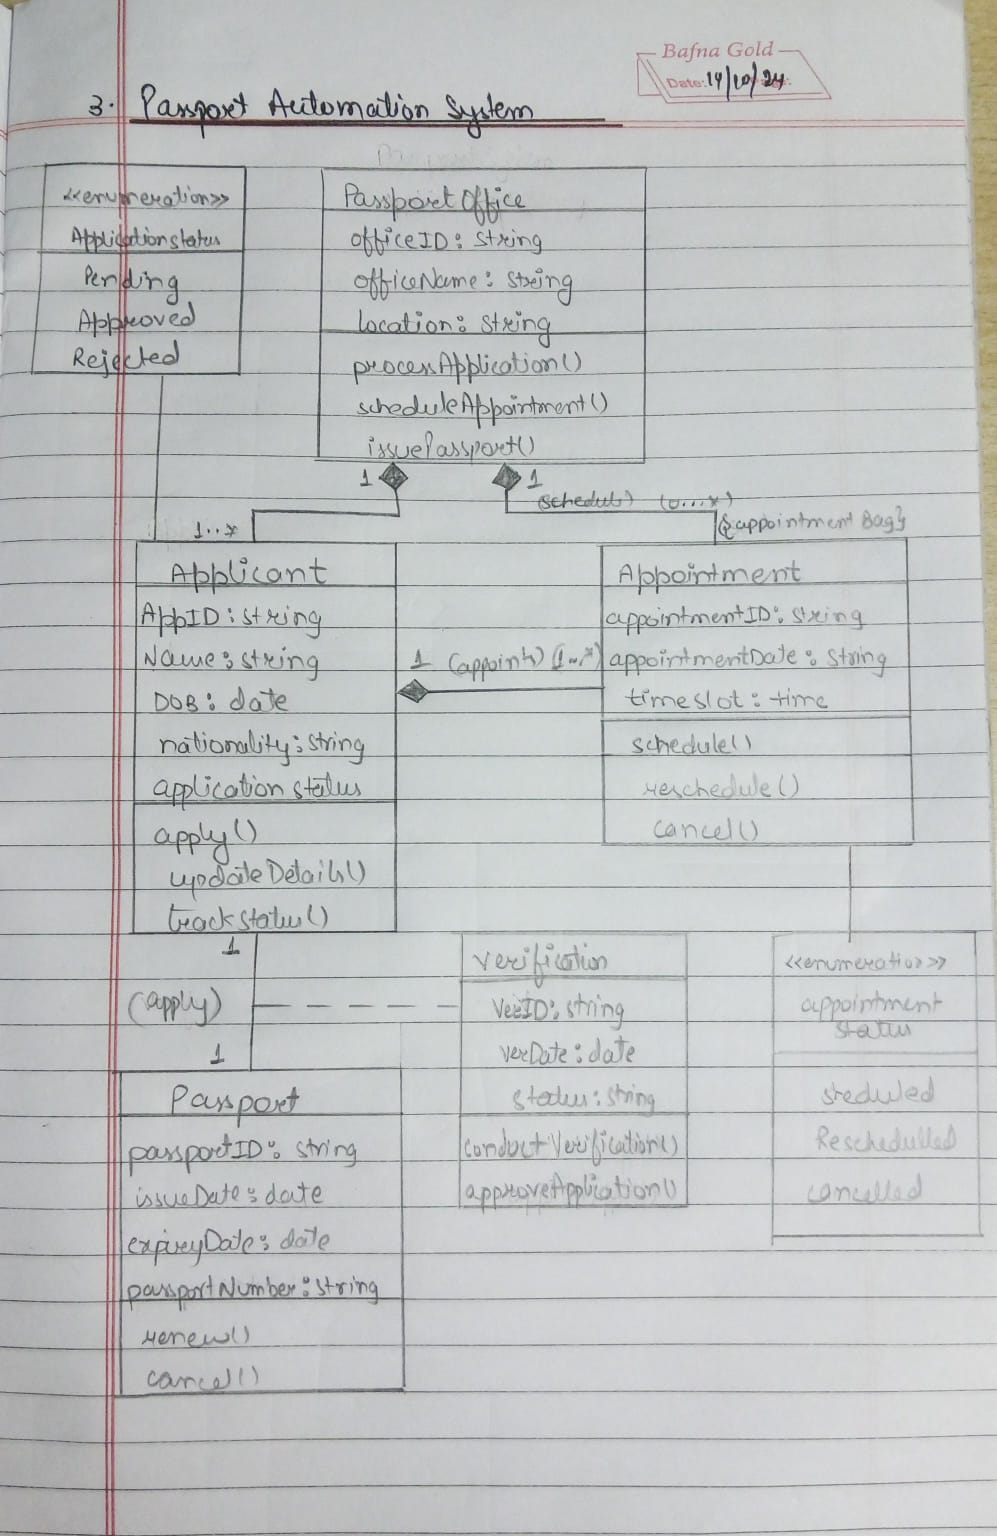 Bafna Gold
Date: 14/10/24
3. Passport Automation System
<<enumeration>>
Applicationstatus
Pending
Approved
Rejected
Passport Office
officeID: String
officeName: String
location: String
processApplication()
scheduleAppointment()
issuePassport()
1
1
(schedule) (0...*)
1..*
{appointment Bag}
Applicant
AppID: string
Name: string
DOB: date
nationality: string
application status
apply()
updateDetails()
track status()
1 (appoints) (1..*)
Appointment
appointmentID: string
appointmentDate: string
timeslot: time
schedule()
reschedule()
cancel()
1
(apply)
1
Verification
VerID: string
verDate: date
status: string
conductVerification()
approveApplication()
<<enumeration>>
appointment
status
sheduled
Reschedulled
cancelled
Passport
passportID: string
issueDate: date
expiryDate: date
passportNumber: string
renew()
cancel()